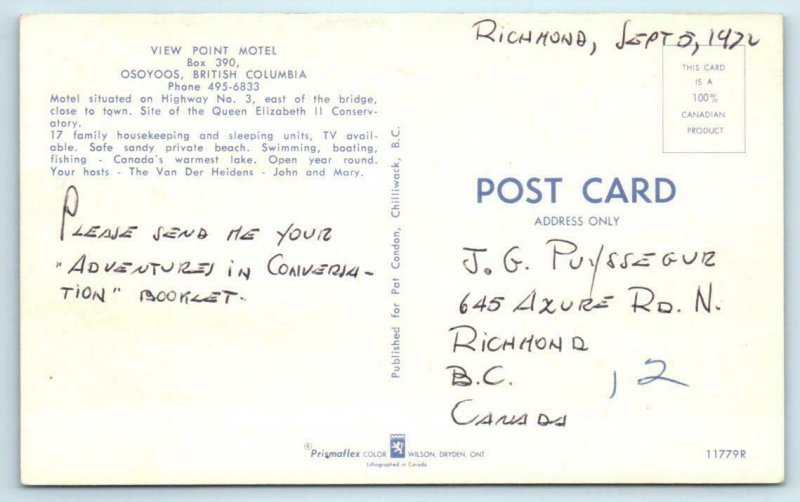 VIEW POINT MOTEL
Box 390,
OSOYOOS, BRITISH COLUMBIA
Phone 495-6833
Motel situated on Highway No. 3, east of the bridge,
close to town. Site of the Queen Elizabeth II Conserv-
atory.
17 family housekeeping and sleeping units, TV avail-
able. Safe sandy private beach. Swimming, boating,
fishing - Canada's warmest lake. Open year round.
Your hosts - The Van Der Heidens - John and Mary.
PLEASE SEND ME YOUR
"ADVENTURES IN CONVERSA-
TION" BOOKLET.
Published for Pat Condon, Chilliwack, B.C.
RICHMOND, SEPT 5, 1972
THIS CARD
IS A
100%
CANADIAN
PRODUCT
POST CARD
ADDRESS ONLY
J. G. PUYSSEGUR
645 AZURE RD. N.
RICHMOND
B.C.
12
CANADA
Prismaflex COLOR WILSON, DRYDEN, ONT
Lithographed in Canada
11779R